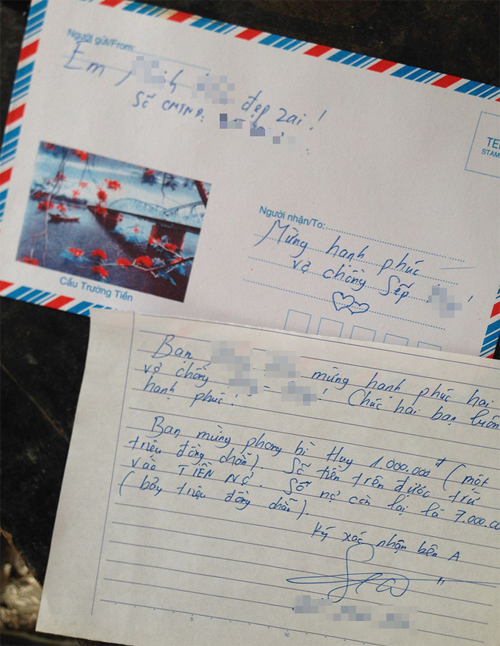 Người gửi/From:
Em, đẹp zai!
Số CMTND:
TE
STAM
Cầu Trường Tiền
Người nhận/To:
Mừng hạnh phúc
vợ chồng Sếp !
Bạn mừng hạnh phúc hai
vợ chồng - ! Chúc hai bạn luôn
hạnh phúc!
Bạn mừng phong bì Huy 1.000.000đ (một
triệu đồng chẵn). Số tiền trên được trừ
vào TIỀN NỢ. Số nợ còn lại là 7.000.00
(bảy triệu đồng chẵn).
Ký xác nhận bên A